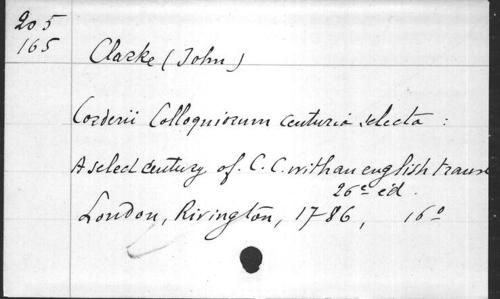 205
165
Clarke (John)
Corderii Colloquiorum centuria selecta :
A select century of C. C. with an english trans
26e ed.
London, Rivington, 1786, 16o